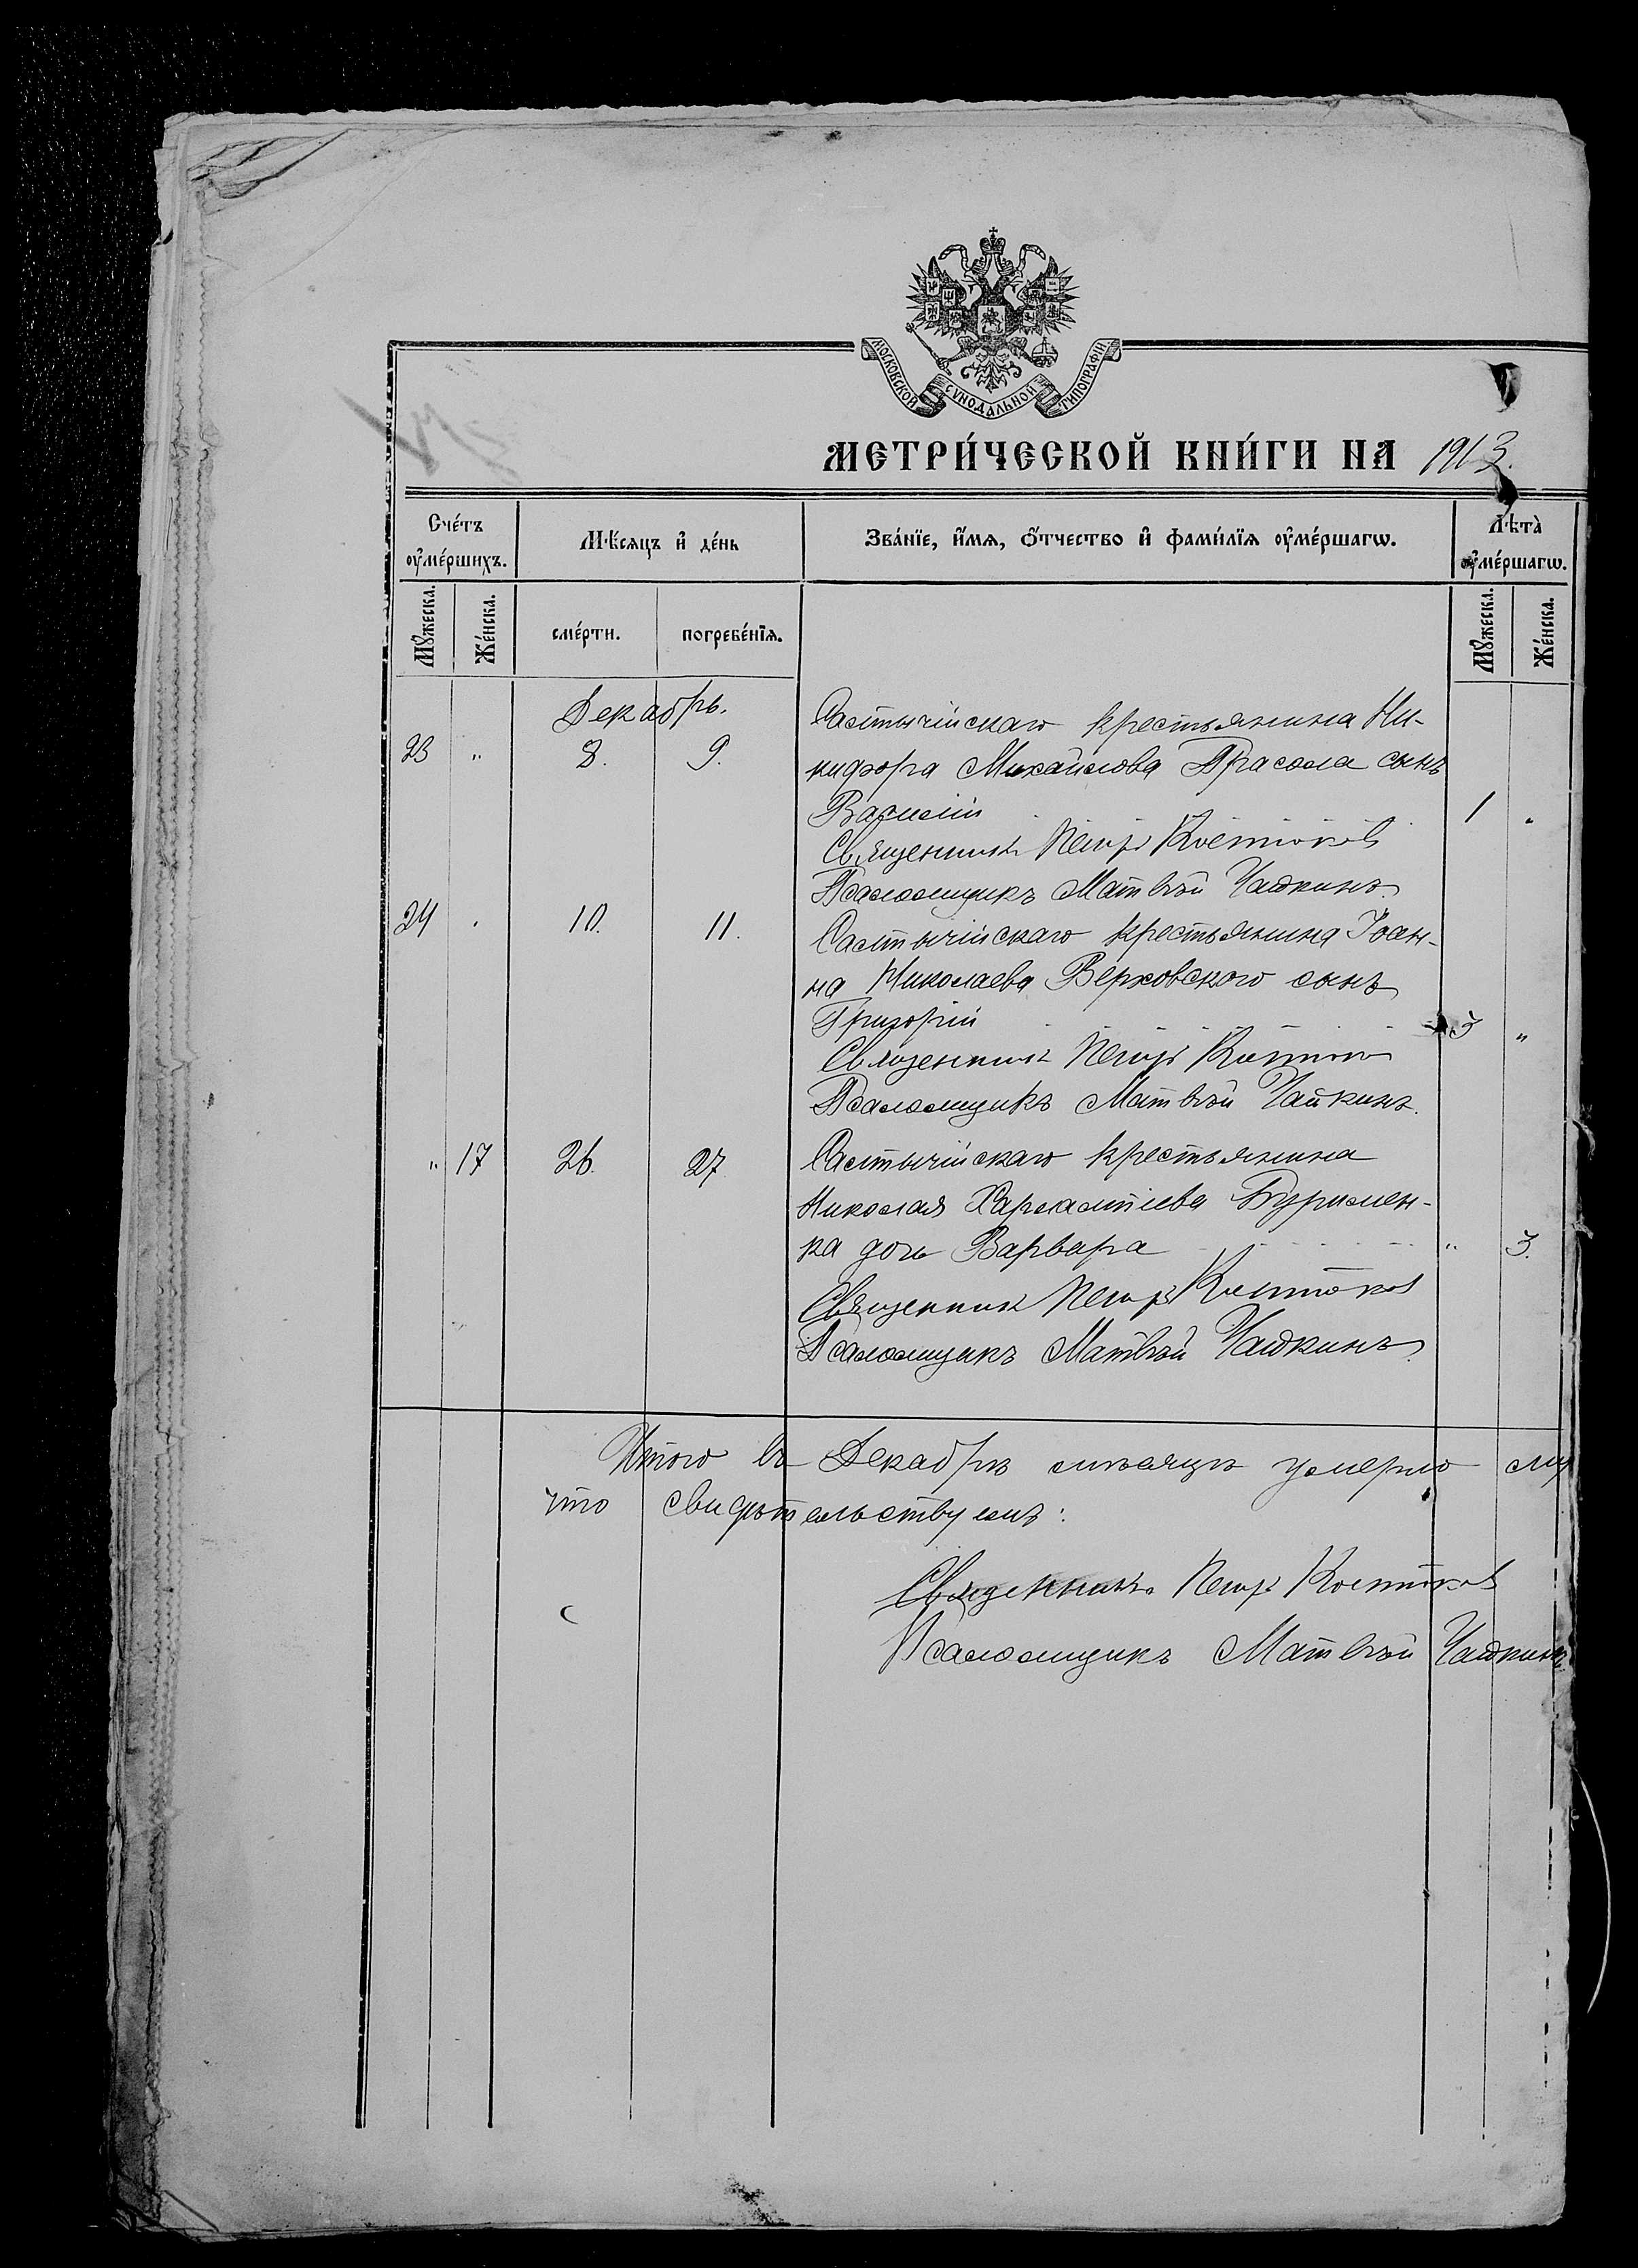 МОСКОВСКОЙ СѴНОДАЛЬНОЙ ТИПОГРАФІИ
МЕТРИ́ЧЕСКОЙ КНИ́ГИ НА 1913.
Сче́тъ оу҆ме́ршихъ.
Мѣ́сяцъ и҆ де́нь
Зва́нїе, и҆́мѧ, ѻ҆́тчество и҆ фами́лїѧ оу҆ме́ршагѡ.
Лѣта̀ оу҆ме́ршагѡ.
Мꙋ́жеска.
Же́нска.
сме́рти.
погребе́нїѧ.
Мꙋ́жеска.
Же́нска.
Декабрь.
23 " 8. 9.
крестьянина Ни-
кифора Михайлова Прасола сынъ
Василій 1 "
Священникъ Петръ
Псаломщикъ Матвѣй Чайкинъ.
24 " 10. 11.
крестьянина Іоан-
на Николаева Верховского сынъ
Григорій 3 "
Священникъ Петръ
Псаломщикъ Матвѣй Чайкинъ.
" 17 26. 27
крестьянина
Николая Харлампіева Буримен-
ка дочь Варвара " 3.
Священникъ Петръ
Псаломщикъ Матвѣй Чайкинъ.
Итого въ Декабрѣ мѣсяцѣ умерло му
что свидѣтельствуемъ:
Священникъ Петръ
Псаломщикъ Матвѣй Чайкинъ.